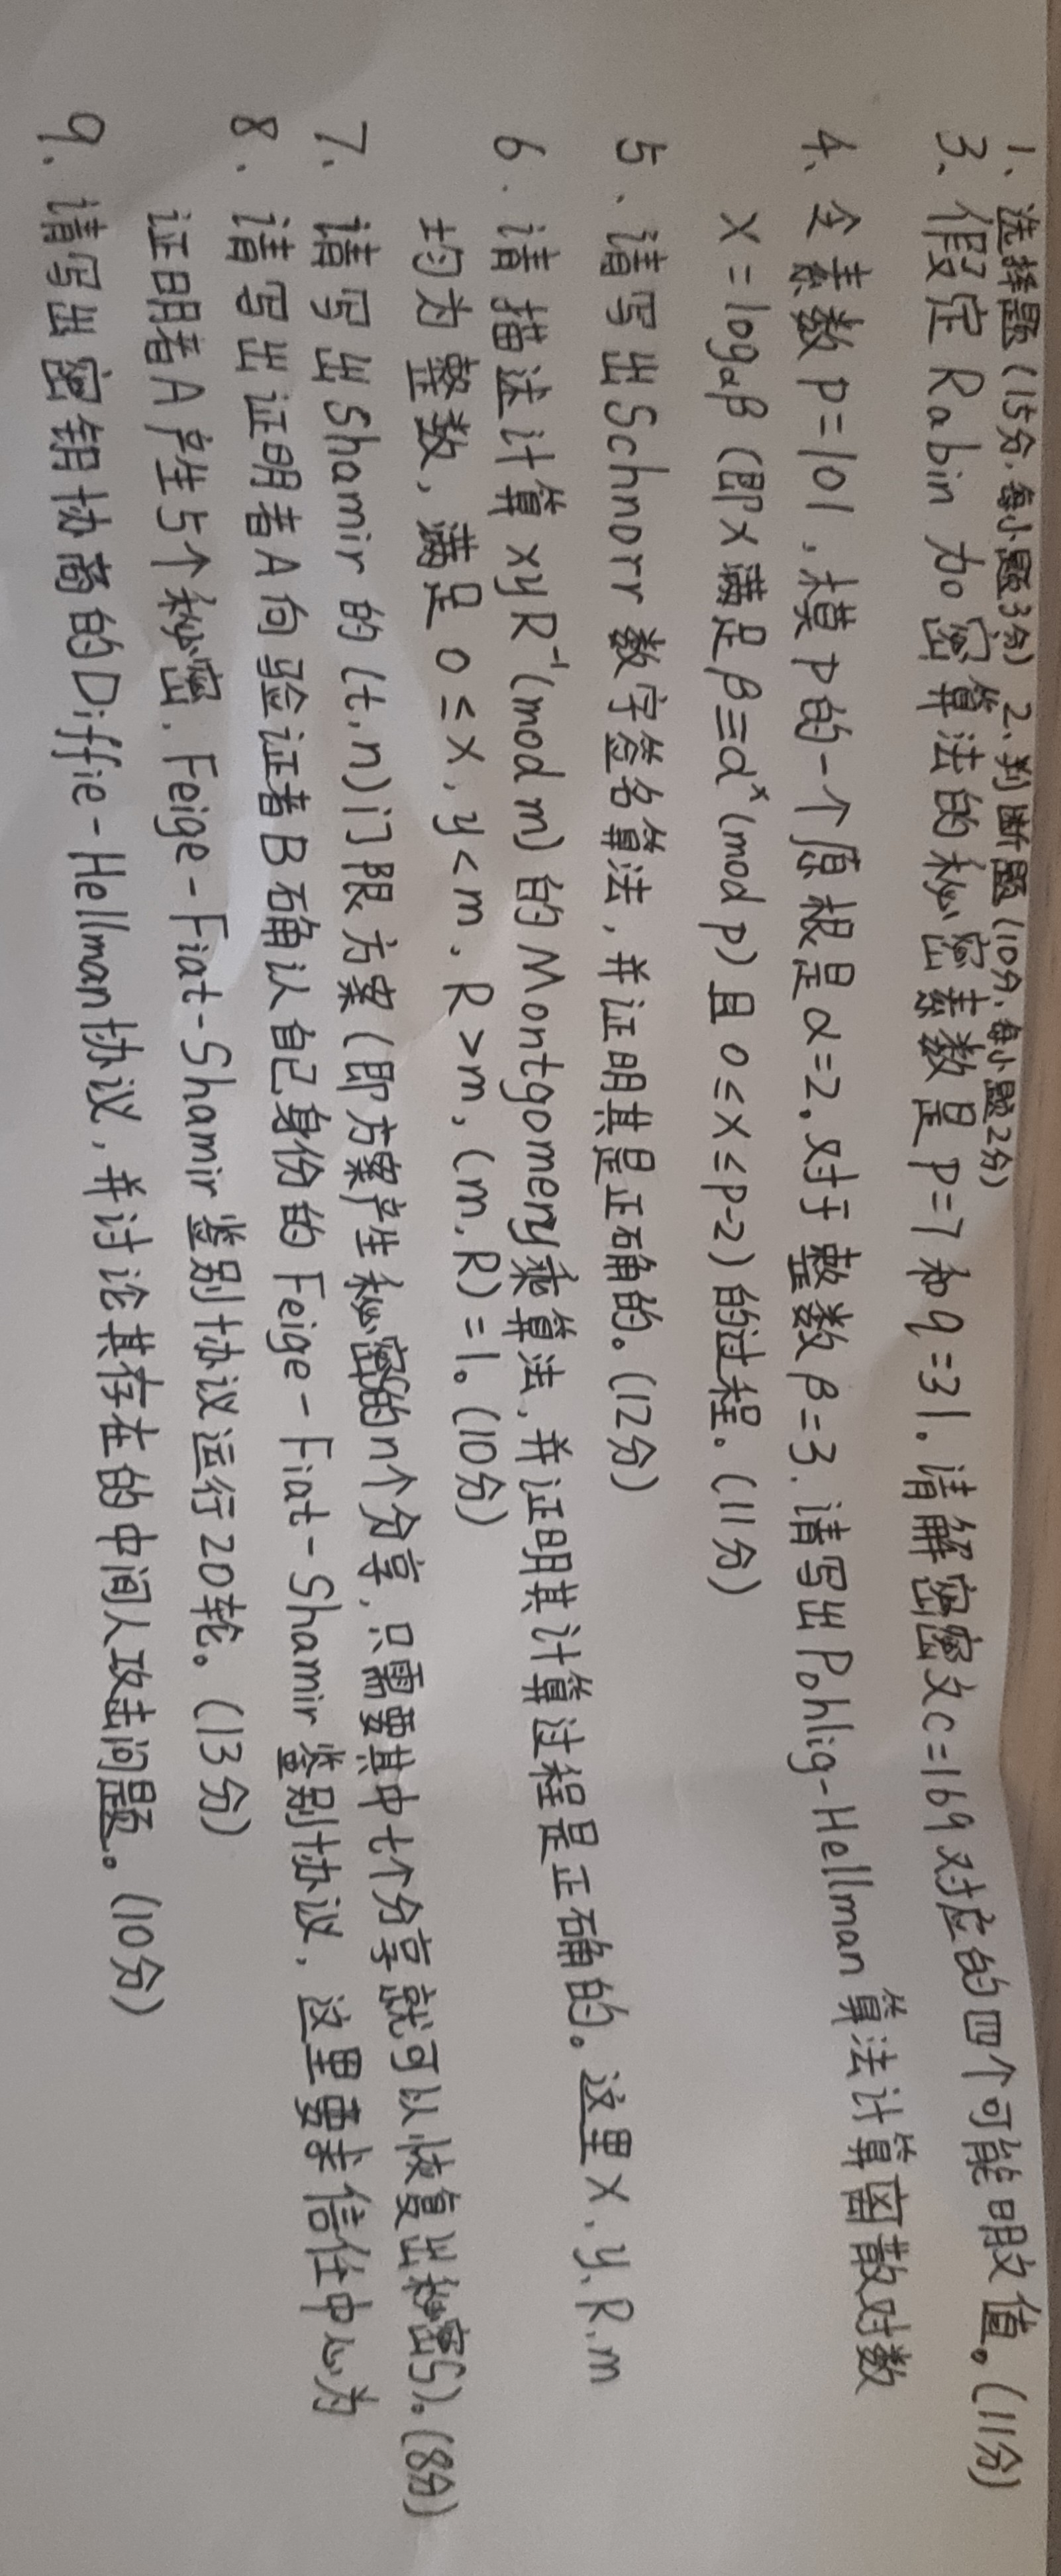 1、选择题(15分,每小题3分) 2、判断题(10分,每小题2分)
3、假定Rabin加密算法的秘密素数是p=7和q=31。请解密密文c=169对应的四个可能明文值。(11分)
4、令素数p=101,模p的一个原根是α=2。对于整数β=3.请写出Pohlig-Hellman算法计算离散对数
x=logαβ(即x满足β≡αˣ(mod p)且0≤x≤p-2)的过程。(11分)
5、请写出Schnorr数字签名算法,并证明其是正确的。(12分)
6.请描述计算xyR⁻¹(mod m)的Montgomery乘算法,并证明其计算过程是正确的。这里x、y、R、m
均为整数,满足0≤x,y<m,R>m,(m,R)=1。(10分)
7、请写出Shamir的(t,n)门限方案(即方案产生秘密S的n个分享,只需要其中t个分享就可以恢复出秘密S)。(8分)
8、请写出证明者A向验证者B确认自己身份的Feige-Fiat-Shamir鉴别协议,这里要求信任中心为
证明者A产生5个秘密.Feige-Fiat-Shamir鉴别协议运行20轮。(13分)
9.请写出密钥协商的Diffie-Hellman协议,并讨论其存在的中间人攻击问题。(10分)